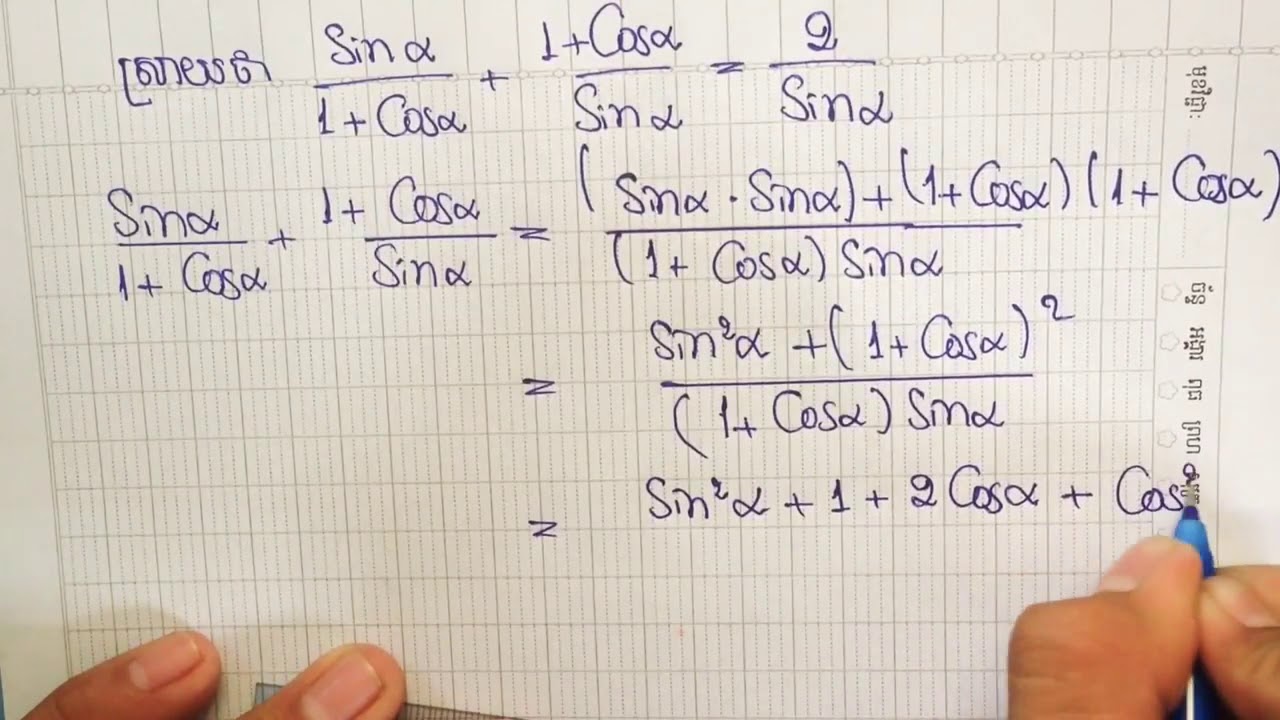 ស្រាយថា Sinα / 1 + Cosα + 1 + Cosα / Sinα = 2 / Sinα
Sinα / 1 + Cosα + 1 + Cosα / Sinα = (Sinα · Sinα) + (1 + Cosα)(1 + Cosα) / (1 + Cosα) Sinα
= Sin²α + (1 + Cosα)² / (1 + Cosα) Sinα
= Sin²α + 1 + 2 Cosα + Cos
ចំន្ទ
អង្គារ
ពុធ
ព្រហ